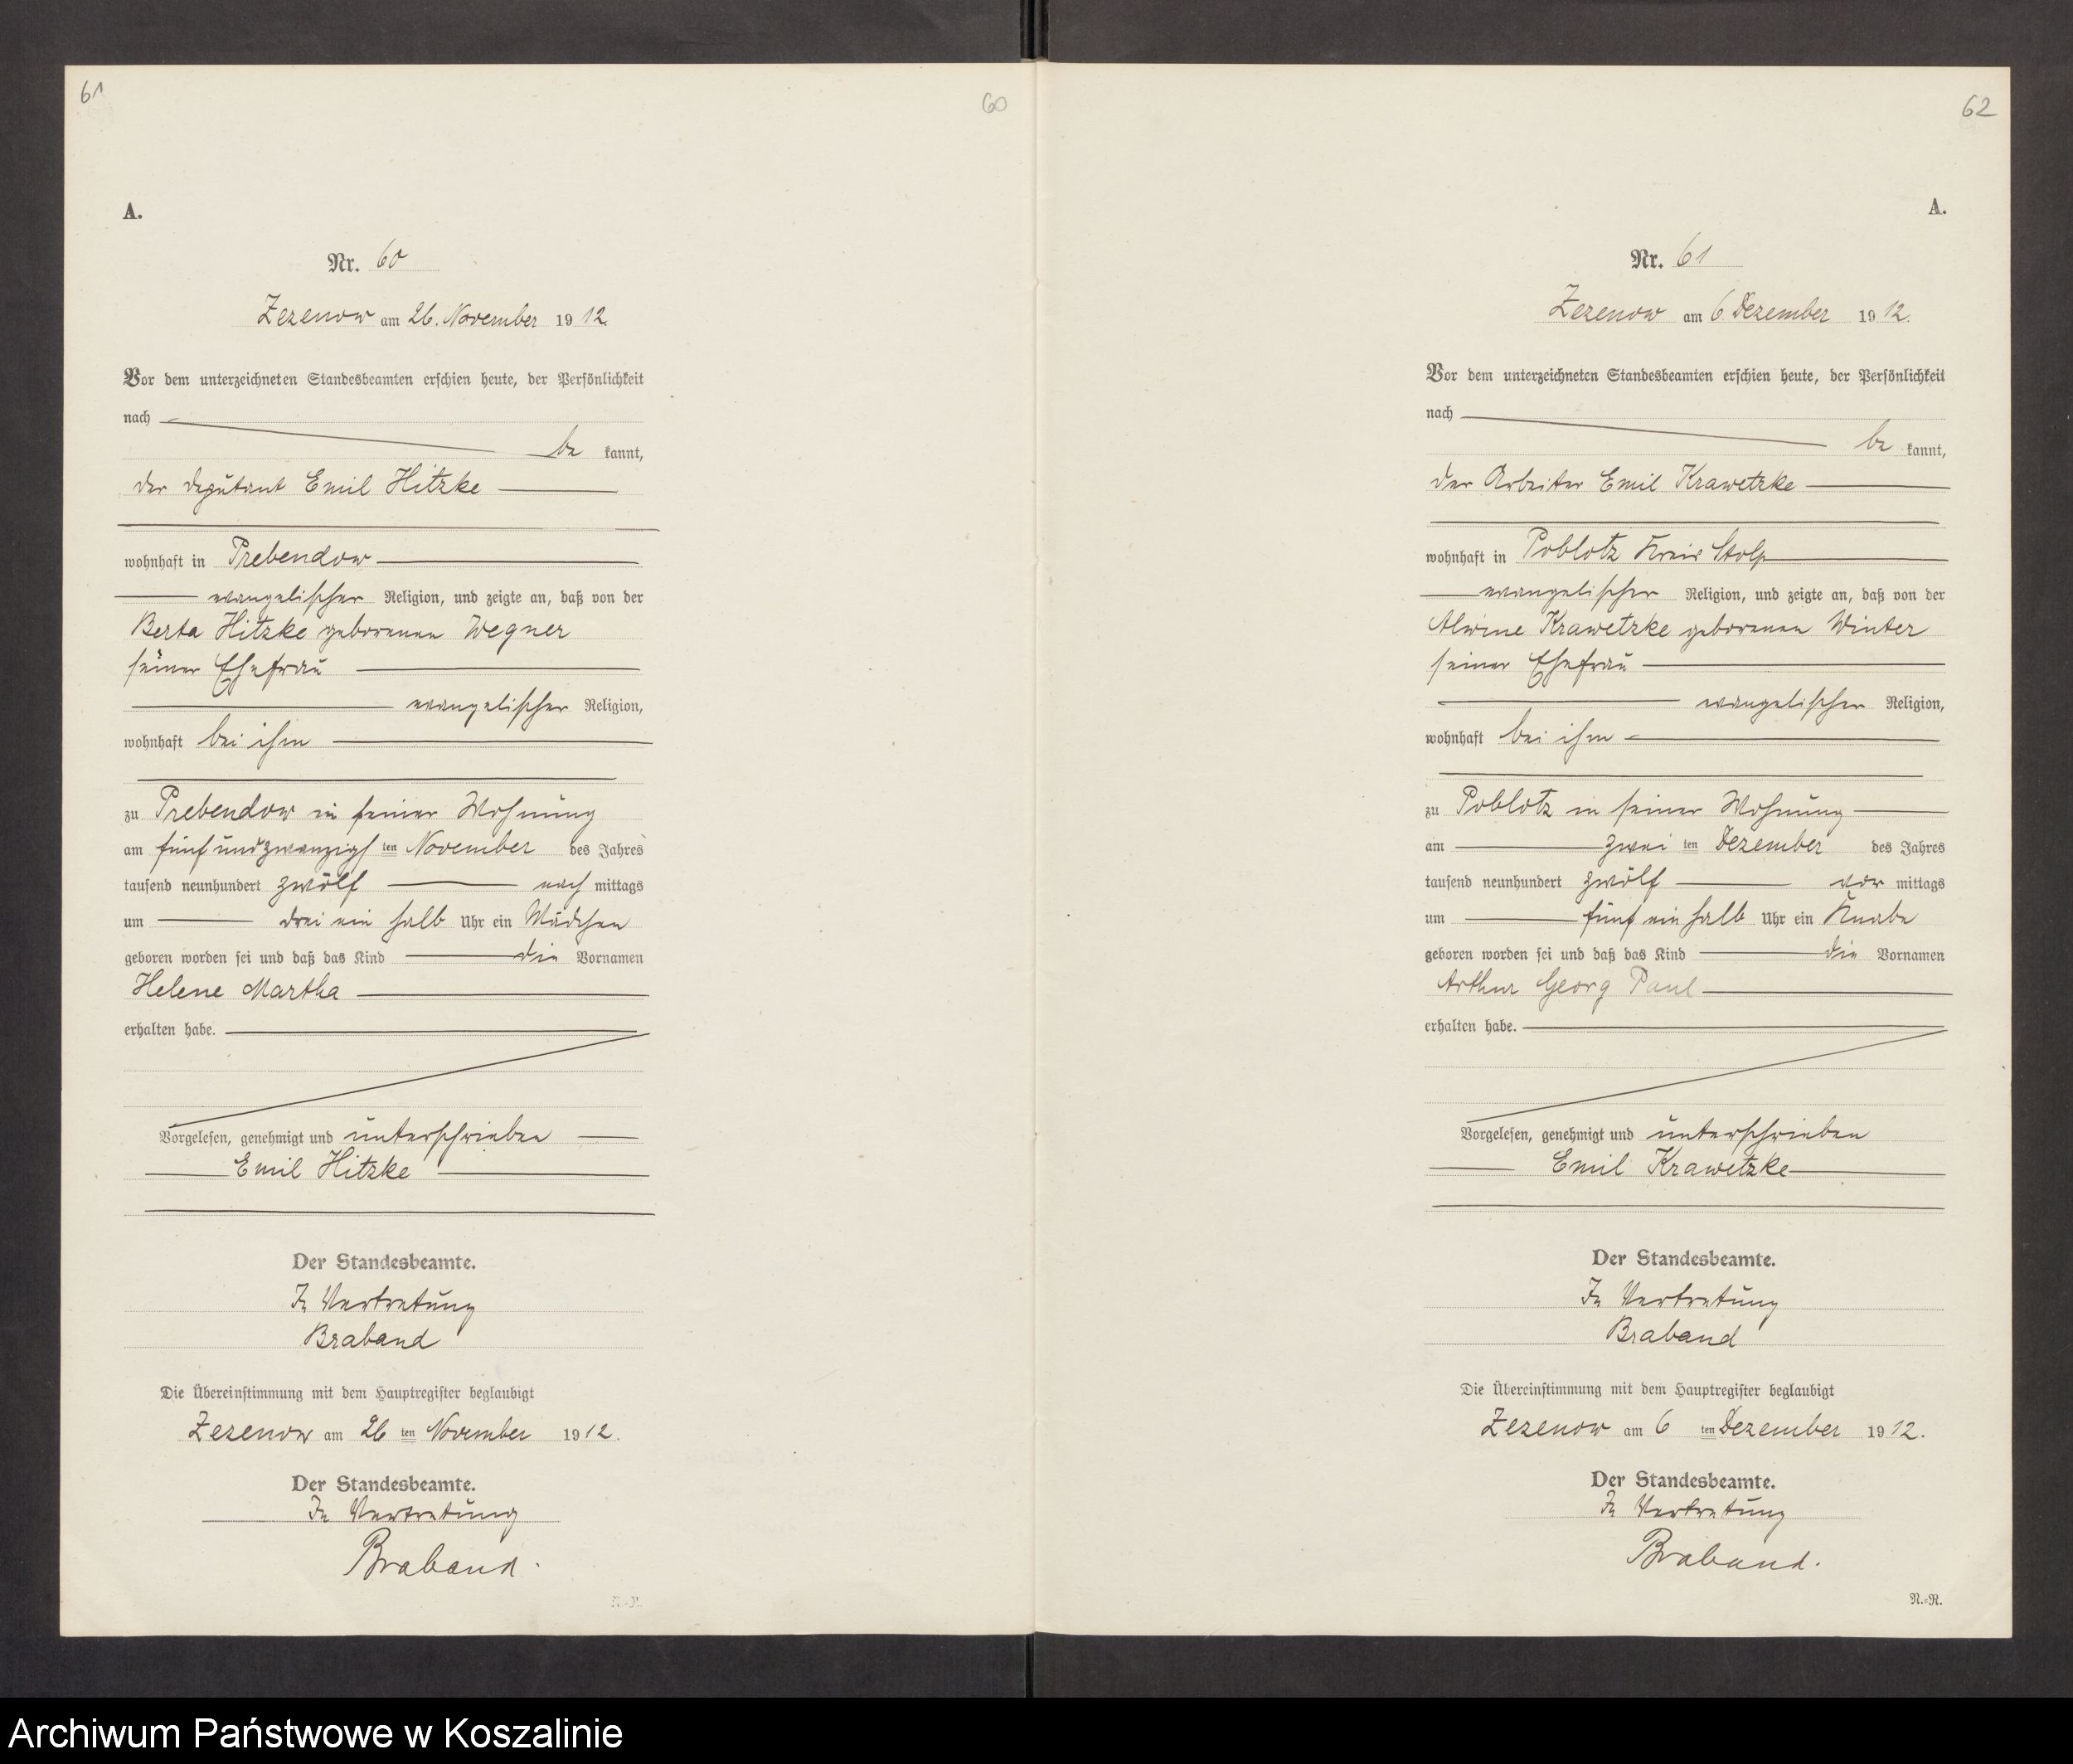 61
60
A.
Nr. 60
Zezenow am 26. November 1912.
Vor dem unterzeichneten Standesbeamten erschien heute, der Persönlichkeit
nach
be kannt,
der Deputant Emil Hitzke
wohnhaft in Prebendow
evangelischer Religion, und zeigte an, daß von der
Berta Hitzke geborenen Wegner
seiner Ehefrau
evangelischer Religion,
wohnhaft bei ihm
zu Prebendow in seiner Wohnung
am fünfundzwanzigsten November des Jahres
tausend neunhundert zwölf nachmittags
um drei ein halb Uhr ein Mädchen
geboren worden sei und daß das Kind die Vornamen
Helene Martha
erhalten habe.
Vorgelesen, genehmigt und unterschrieben
Emil Hitzke
Der Standesbeamte.
In Vertretung
Braband
Die Übereinstimmung mit dem Hauptregister beglaubigt
Zezenow am 26 ten November 1912.
Der Standesbeamte.
In Vertretung
Braband.
N.-R.
62
A.
Nr. 61
Zezenow am 6. Dezember 1912.
Vor dem unterzeichneten Standesbeamten erschien heute, der Persönlichkeit
nach
be kannt,
der Arbeiter Emil Krawetzke
wohnhaft in Poblotz Kreis Stolp
evangelischer Religion, und zeigte an, daß von der
Alwine Krawetzke geborenen Winter
seiner Ehefrau
evangelischer Religion,
wohnhaft bei ihm
zu Poblotz in seiner Wohnung
am zwei ten Dezember des Jahres
tausend neunhundert zwölf vor mittags
um fünf ein halb Uhr ein Knabe
geboren worden sei und daß das Kind die Vornamen
Arthur Georg Paul
erhalten habe.
Vorgelesen, genehmigt und unterschrieben
Emil Krawetzke
Der Standesbeamte.
In Vertretung
Braband
Die Übereinstimmung mit dem Hauptregister beglaubigt
Zezenow am 6 ten Dezember 1912.
Der Standesbeamte.
In Vertretung
Braband.
N.-R.
Archiwum Państwowe w Koszalinie